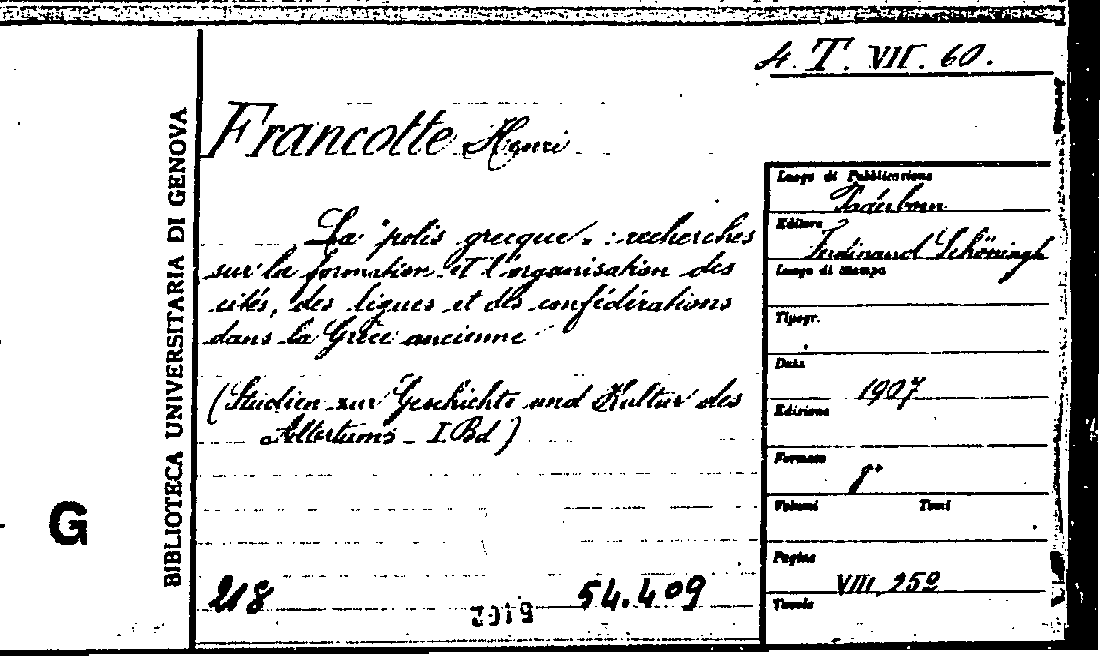 4. T. VII. 60.
BIBLIOTECA UNIVERSITARIA DI GENOVA
Francotte Henri
La polis grecque. : recherches
sur la formation et l'organisation des
cités, des ligues et des confédérations
dans la Grèce ancienne
(Studien zur Geschichte und Kultur des
Altertums - I. Bd)
218
2019
54.409
Luogo di Pubblicazione
Paderborn
Editore
Ferdinand Schöningh
Luogo di stampa
Tipogr.
Data
1907
Edizione
Formato
8°
Volumi Tomi
Pagine
VIII, 252
Tavole
G